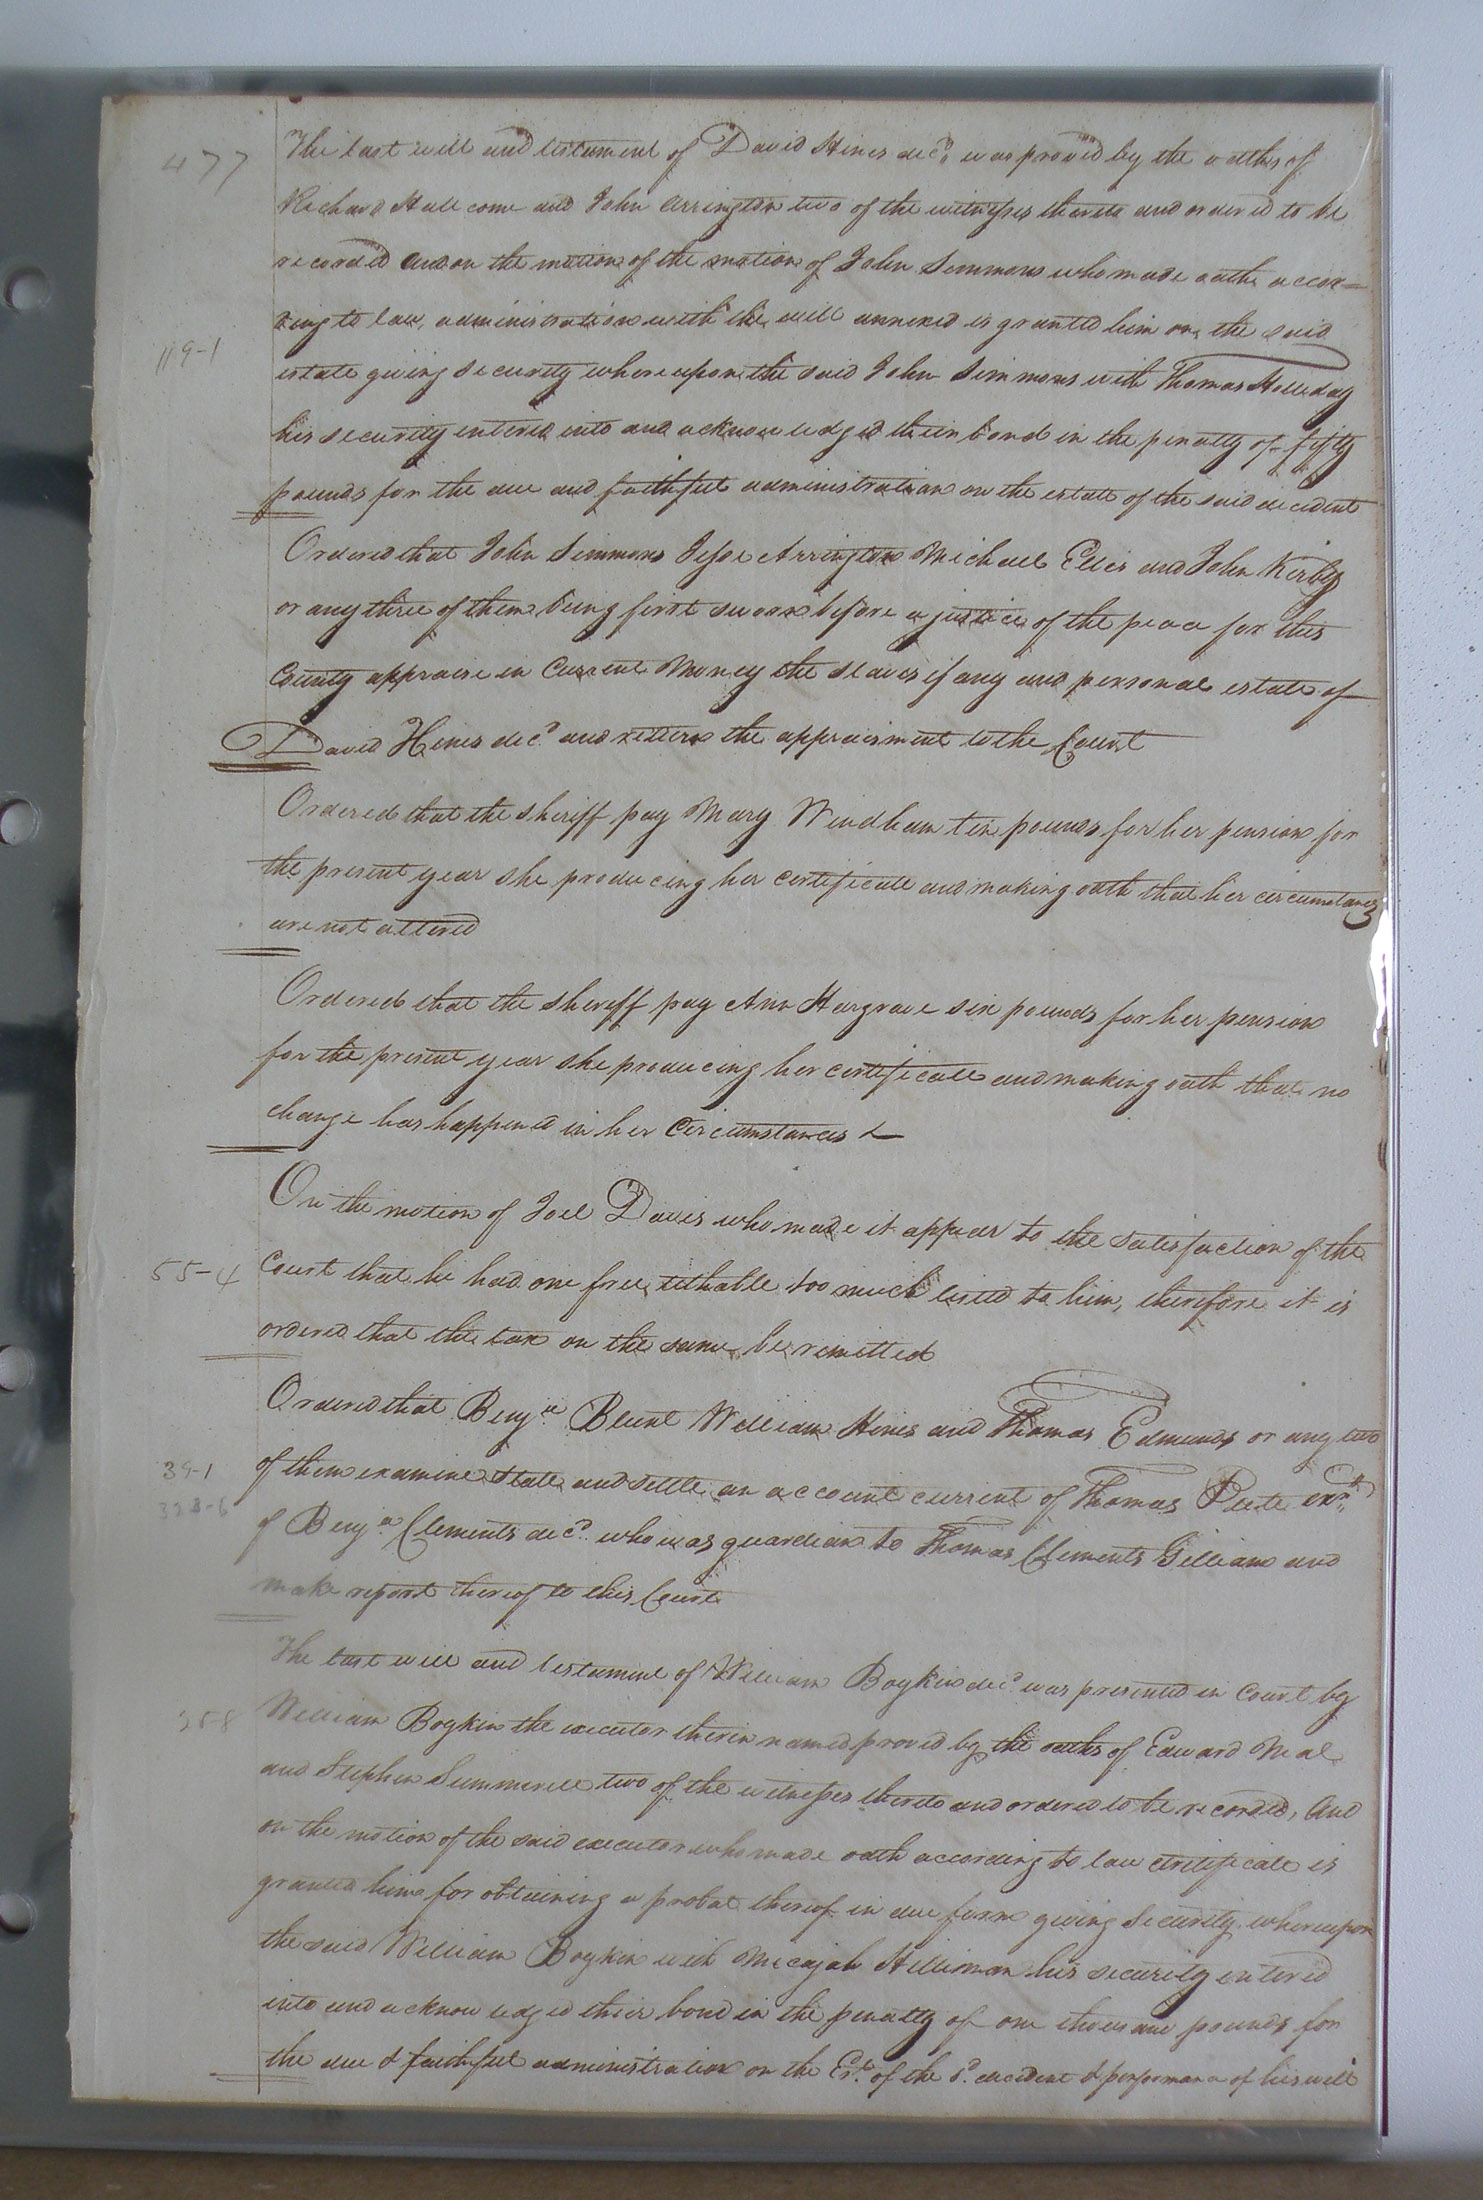 477
The last will and testament of David Hines dec.d was proved by the oaths of
Richard Hall come and John Arrington two of the witnesses thereto and ordered to be
recorded and on the motion of the motion of John Simmons who made oath accor=
119-1
ding to law, administration with the will annexed is granted him on the said
estate giving security whereupon the said John Simmons with Thomas Holleday
his security entered into and acknowledged their bond in the penalty of fifty
pounds for the due and faithful administration on the estate of the said decedent
Ordered that John Simmons Jesse Arrington Michael Ellis and John Kirby
or any three of them being first sworn before a justice of the peace for this
County appraise in Current Money the slaves if any and personal estate of
David Hines dec.d and return the appraisment to the Court
Ordered that the sheriff pay Mary Windham ten pounds for her pension for
the present year she producing her certificate and making oath that her circumstances
are not altered
Ordered that the sheriff pay Ann Hargrave six pounds for her pension
for the present year she producing her certificate and making oath that no
change has happened in her Circumstances
On the motion of Joel Davis who made it appear to the satisfaction of the
55-4
Court that he had one free tithable too much listed to him, therefore it is
ordered that the tax on the same be remitted
Ordered that Benj.a Blunt William Hines and Thomas Edmunds or any two
39-1
of them examine state and settle an account current of Thomas Peete ex.r
of Benj.a Clements dec.d who was guardian to Thomas Clements Gilliam and
make report thereof to this Court
The last will and testament of William Boykin dec.d was presented in Court by
William Boykin the executor therein named proved by the oaths of Edward Neal
and Stephen Summerell two of the witnesses thereto and ordered to be recorded, And
on the motion of the said executor who made oath according to law certificate is
granted him for obtaining a probat thereof in due form giving security whereupon
the said William Boykin with Micajah Holliman his security entered
into and acknowledged their bond in the penalty of one thousand pounds for
the due & faithful administration on the Es.t of the s.d decedent & performance of his will